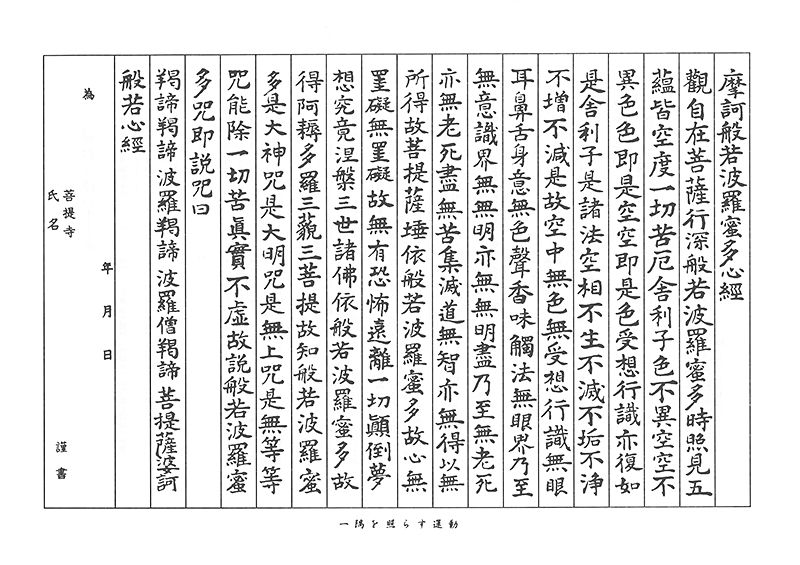 摩訶般若波羅蜜多心經
觀自在菩薩行深般若波羅蜜多時照見五
蘊皆空度一切苦厄舎利子色不異空空不
異色色即是空空即是色受想行識亦復如
是舎利子是諸法空相不生不滅不垢不淨
不増不減是故空中無色無受想行識無眼
耳鼻舌身意無色聲香味觸法無眼界乃至
無意識界無無明亦無無明盡乃至無老死
亦無老死盡無苦集滅道無智亦無得以無
所得故菩提薩埵依般若波羅蜜多故心無
罣礙無罣礙故無有恐怖遠離一切顚倒夢
想究竟涅槃三世諸佛依般若波羅蜜多故
得阿耨多羅三藐三菩提故知般若波羅蜜
多是大神咒是大明咒是無上咒是無等等
咒能除一切苦眞實不虚故説般若波羅蜜
多咒即説咒曰
羯諦羯諦波羅羯諦波羅僧羯諦菩提薩婆訶
般若心經
為
年月日
菩提寺
氏名
謹書
一隅を照らす運動